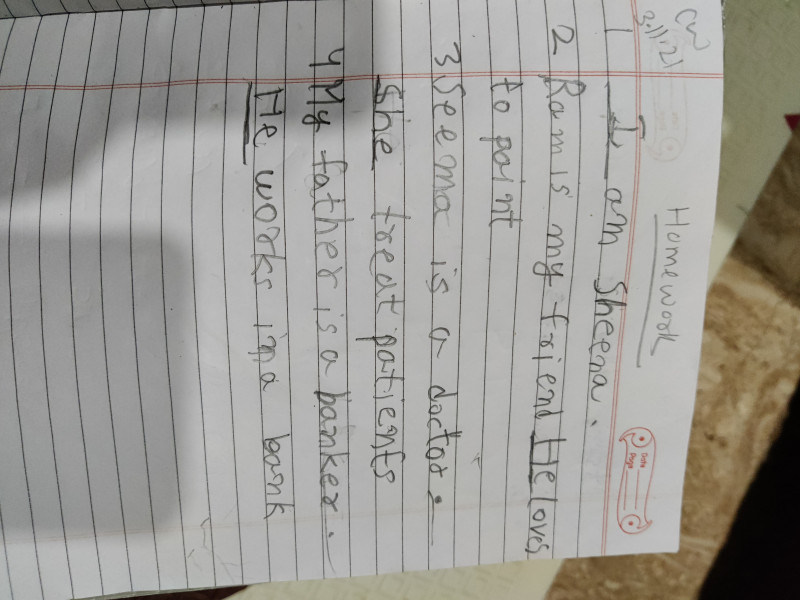 CW
3.11.21
Homework
Date
Page
1 I am Sheena.
2 Ram is my friend He loves
to point
3 Seema is a doctor.
She treat patients
4 My father is a banker.
He works in a bank